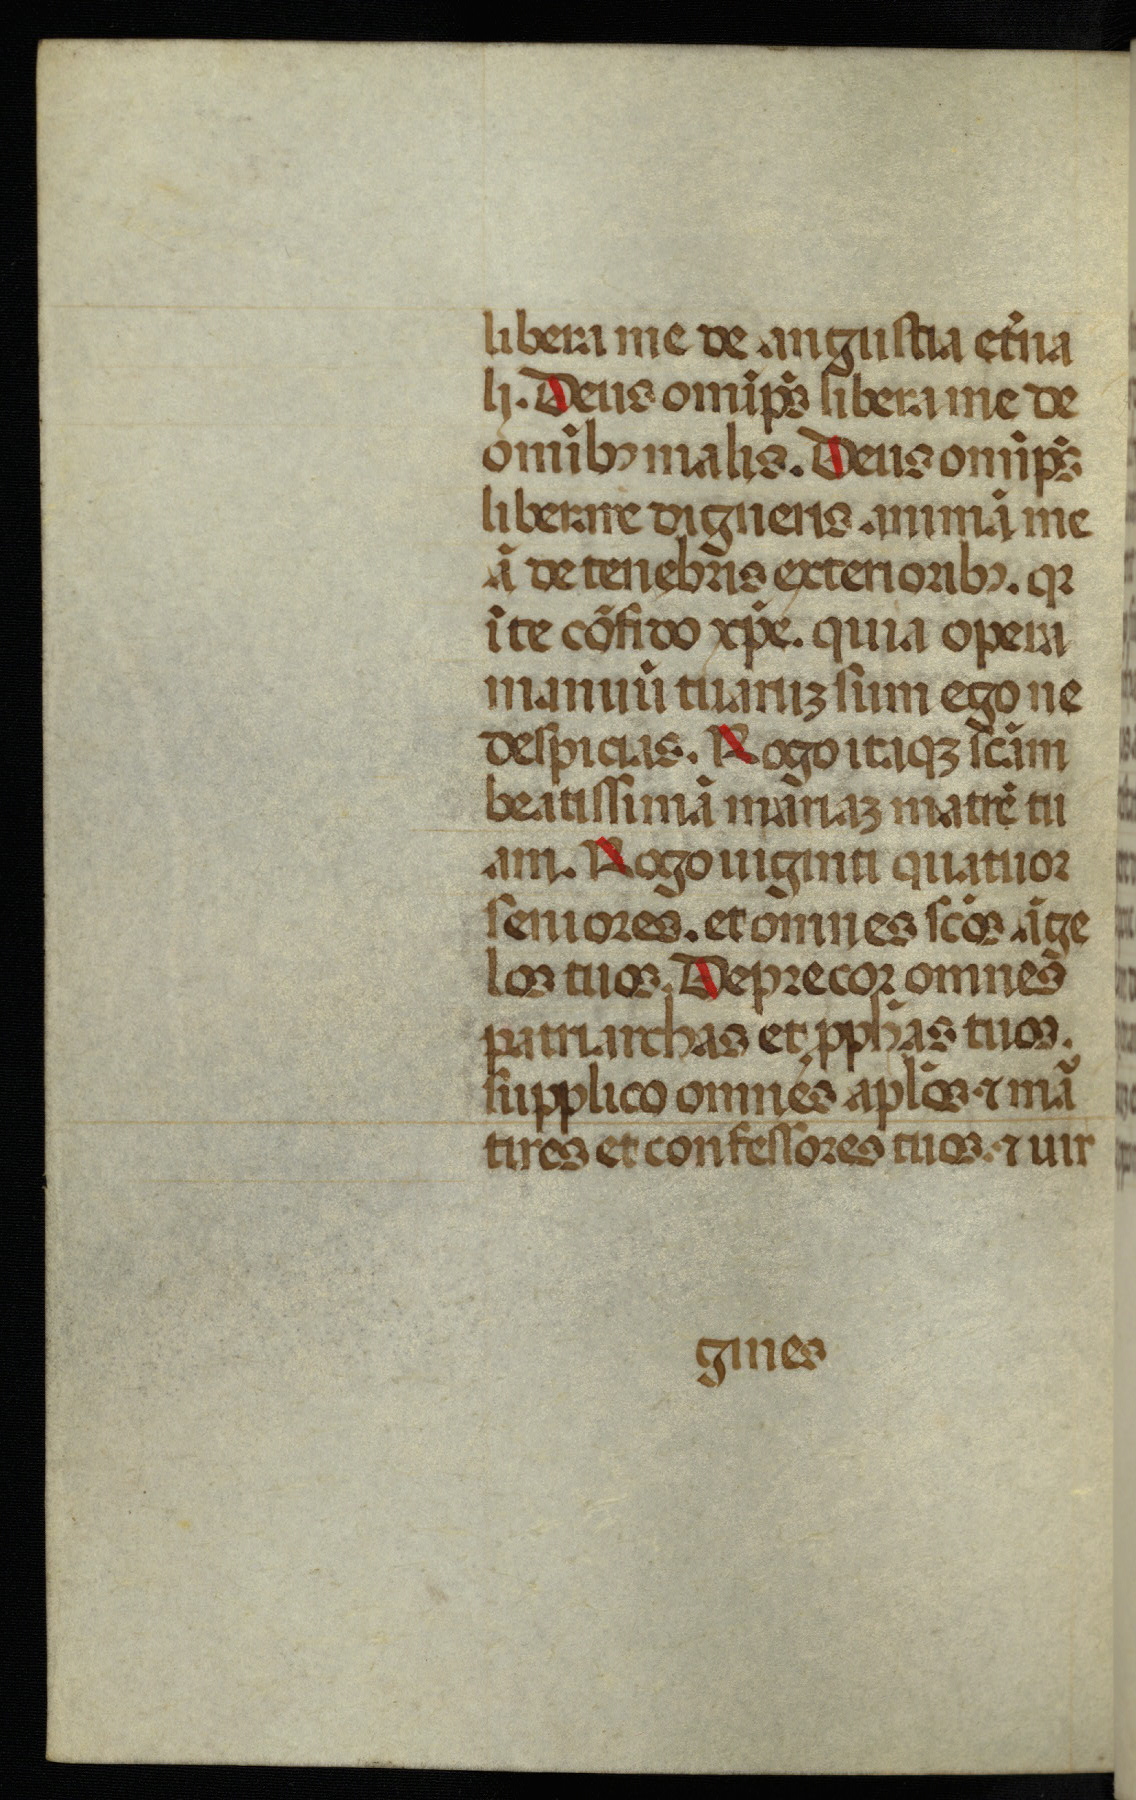 libera me de angustia et̃na
lj. Deus om̃ip̃s libera me de
om̃ibꝫ malis. Deus om̃ip̃s
liberare digneris animã me
ã de tenebris exterioribꝫ. qꝛ
ĩ te cõfido xp̃e. quia opera
manuũ tuaruꝫ sum ego ne
despicias. Rogo itaqꝫ sc̃am
beatissimã mariaꝫ matrẽ tu
am. Rogo uiginti quatuor
seniores. et omnes sc̃os ãge
los tuos. Deprecor omnes
patriarchas et ꝓph̃as tuos.
supplico omnes apl̃os ⁊ mã
tires et confessores tuos ⁊ uir
gines